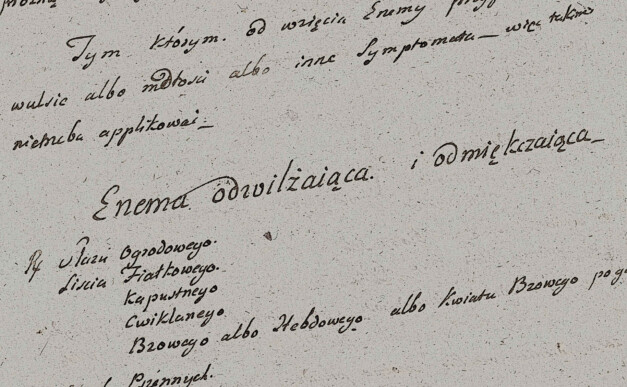 Tym którym. od wzięcia Enemy
wulsie albo mdłości albo inne Symptomata_ więc takim
nietrzeba applikować_
Enema odwilżaiąca. i odmiękczaiąca_
Rx Slazu Ogrodowego.
Liscia Fiałkowego.
Kapustnego
Cwiklanego
Bzowego albo Hebdowego albo Kwiatu Bzowego